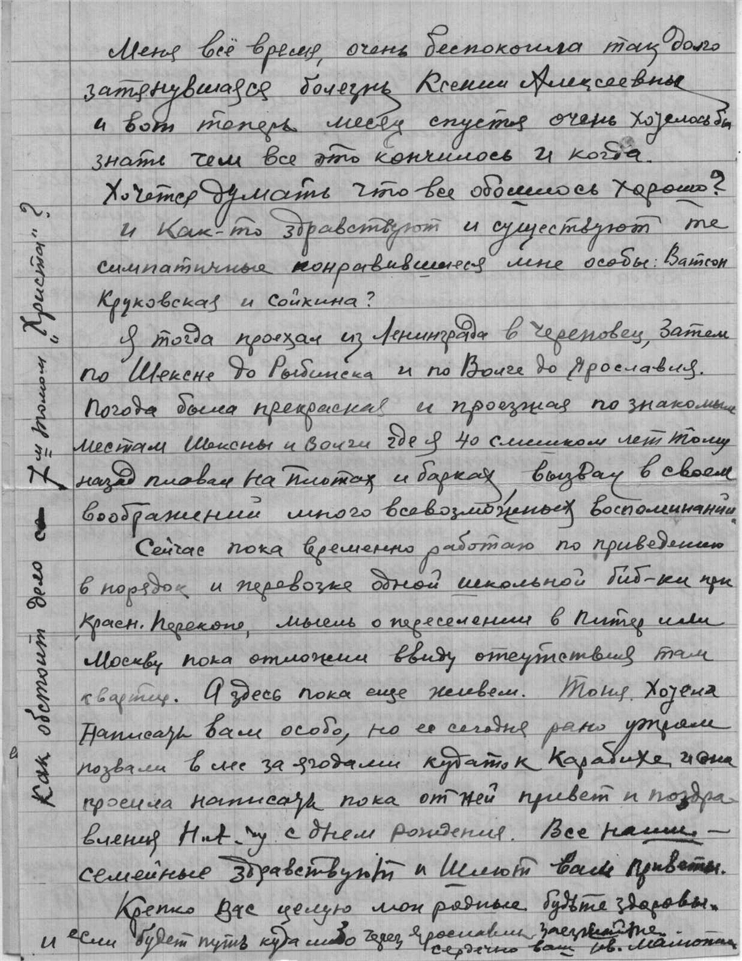 Меня всё время, очень беспокоила так долго
затянувшаяся болезнь Ксении Алексеевны
и вот теперь месяц спустя очень хотелось бы
знать чем все это кончилось и когда.
Хочется думать что все обошлось хорошо?
И как-то здравствуют и существуют те
симпатичные понравившиеся мне особы: Ватсон
Круковская и Сойкина?
Я тогда проехал из Ленинграда в Череповец, затем
по Шексне до Рыбинска и по Волге до Ярославля.
Погода была прекрасная и проезжая по знакомым
местам Шексны и Волги где я 40 слишком лет тому
назад плавал на плотах и барках вызвал в своем
воображений много всевозможных воспоминаний.
Сейчас пока временно работаю по приведению
в порядок и перевозке одной школьной биб-ки при
Красн. Перекопе, мысль о переселении в Питер или
Москву пока отложили ввиду отсутствия там
квартир. А здесь пока еще живем. Тоня хотела
написать вам особо, но ее сегодня рано утром
позвали в лес за ягодами куда то к Карабихе, и она
просила написать пока от ней привет и поздра
вления Н.А-чу с днем рождения. Все наши —
семейные здравствуют и шлют вам приветы.
Крепко вас целую мои родные будьте здоровы.
и если будет путь куда либо через Ярославль заезжайте
сердечно ваш Ив.
Как обстоит дело с 7м томом „Христа"?